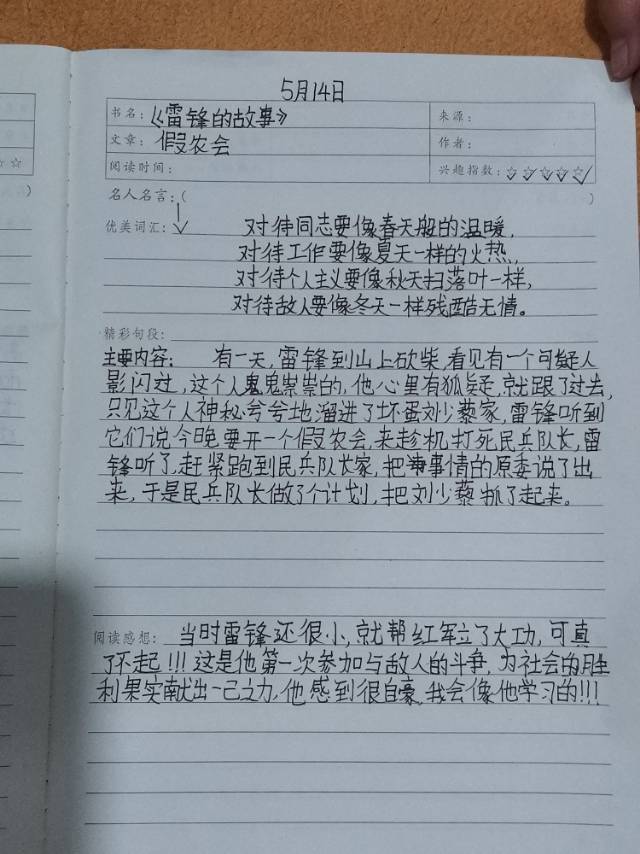 5月14日
书名：《雷锋的故事》
来源：
文章：假农会
作者：
阅读时间：
兴趣指数：☆☆☆☆☆
名人名言：（ ）
优美词汇： 对待同志要像春天般的温暖，
对待工作要像夏天一样的火热，
对待个人主义要像秋天扫落叶一样，
对待敌人要像冬天一样残酷无情。
精彩句段：
主要内容： 有一天，雷锋到山上砍柴，看见有一个可疑人
影闪过，这个人鬼鬼祟祟的，他心里有狐疑，就跟了过去，
只见这个人神秘兮兮地溜进了坏蛋刘少藜家，雷锋听到
它们说今晚要开一个假农会，来趁机打死民兵队长，雷
锋听了，赶紧跑到民兵队长家，把事情的原委说了出
来，于是民兵队长做了个计划，把刘少藜抓了起来。
阅读感想： 当时雷锋还很小，就帮红军立了大功，可真
了不起！！！这是他第一次参加与敌人的斗争，为社会的胜
利果实献出一己之力，他感到很自豪，我会像他学习的!!!